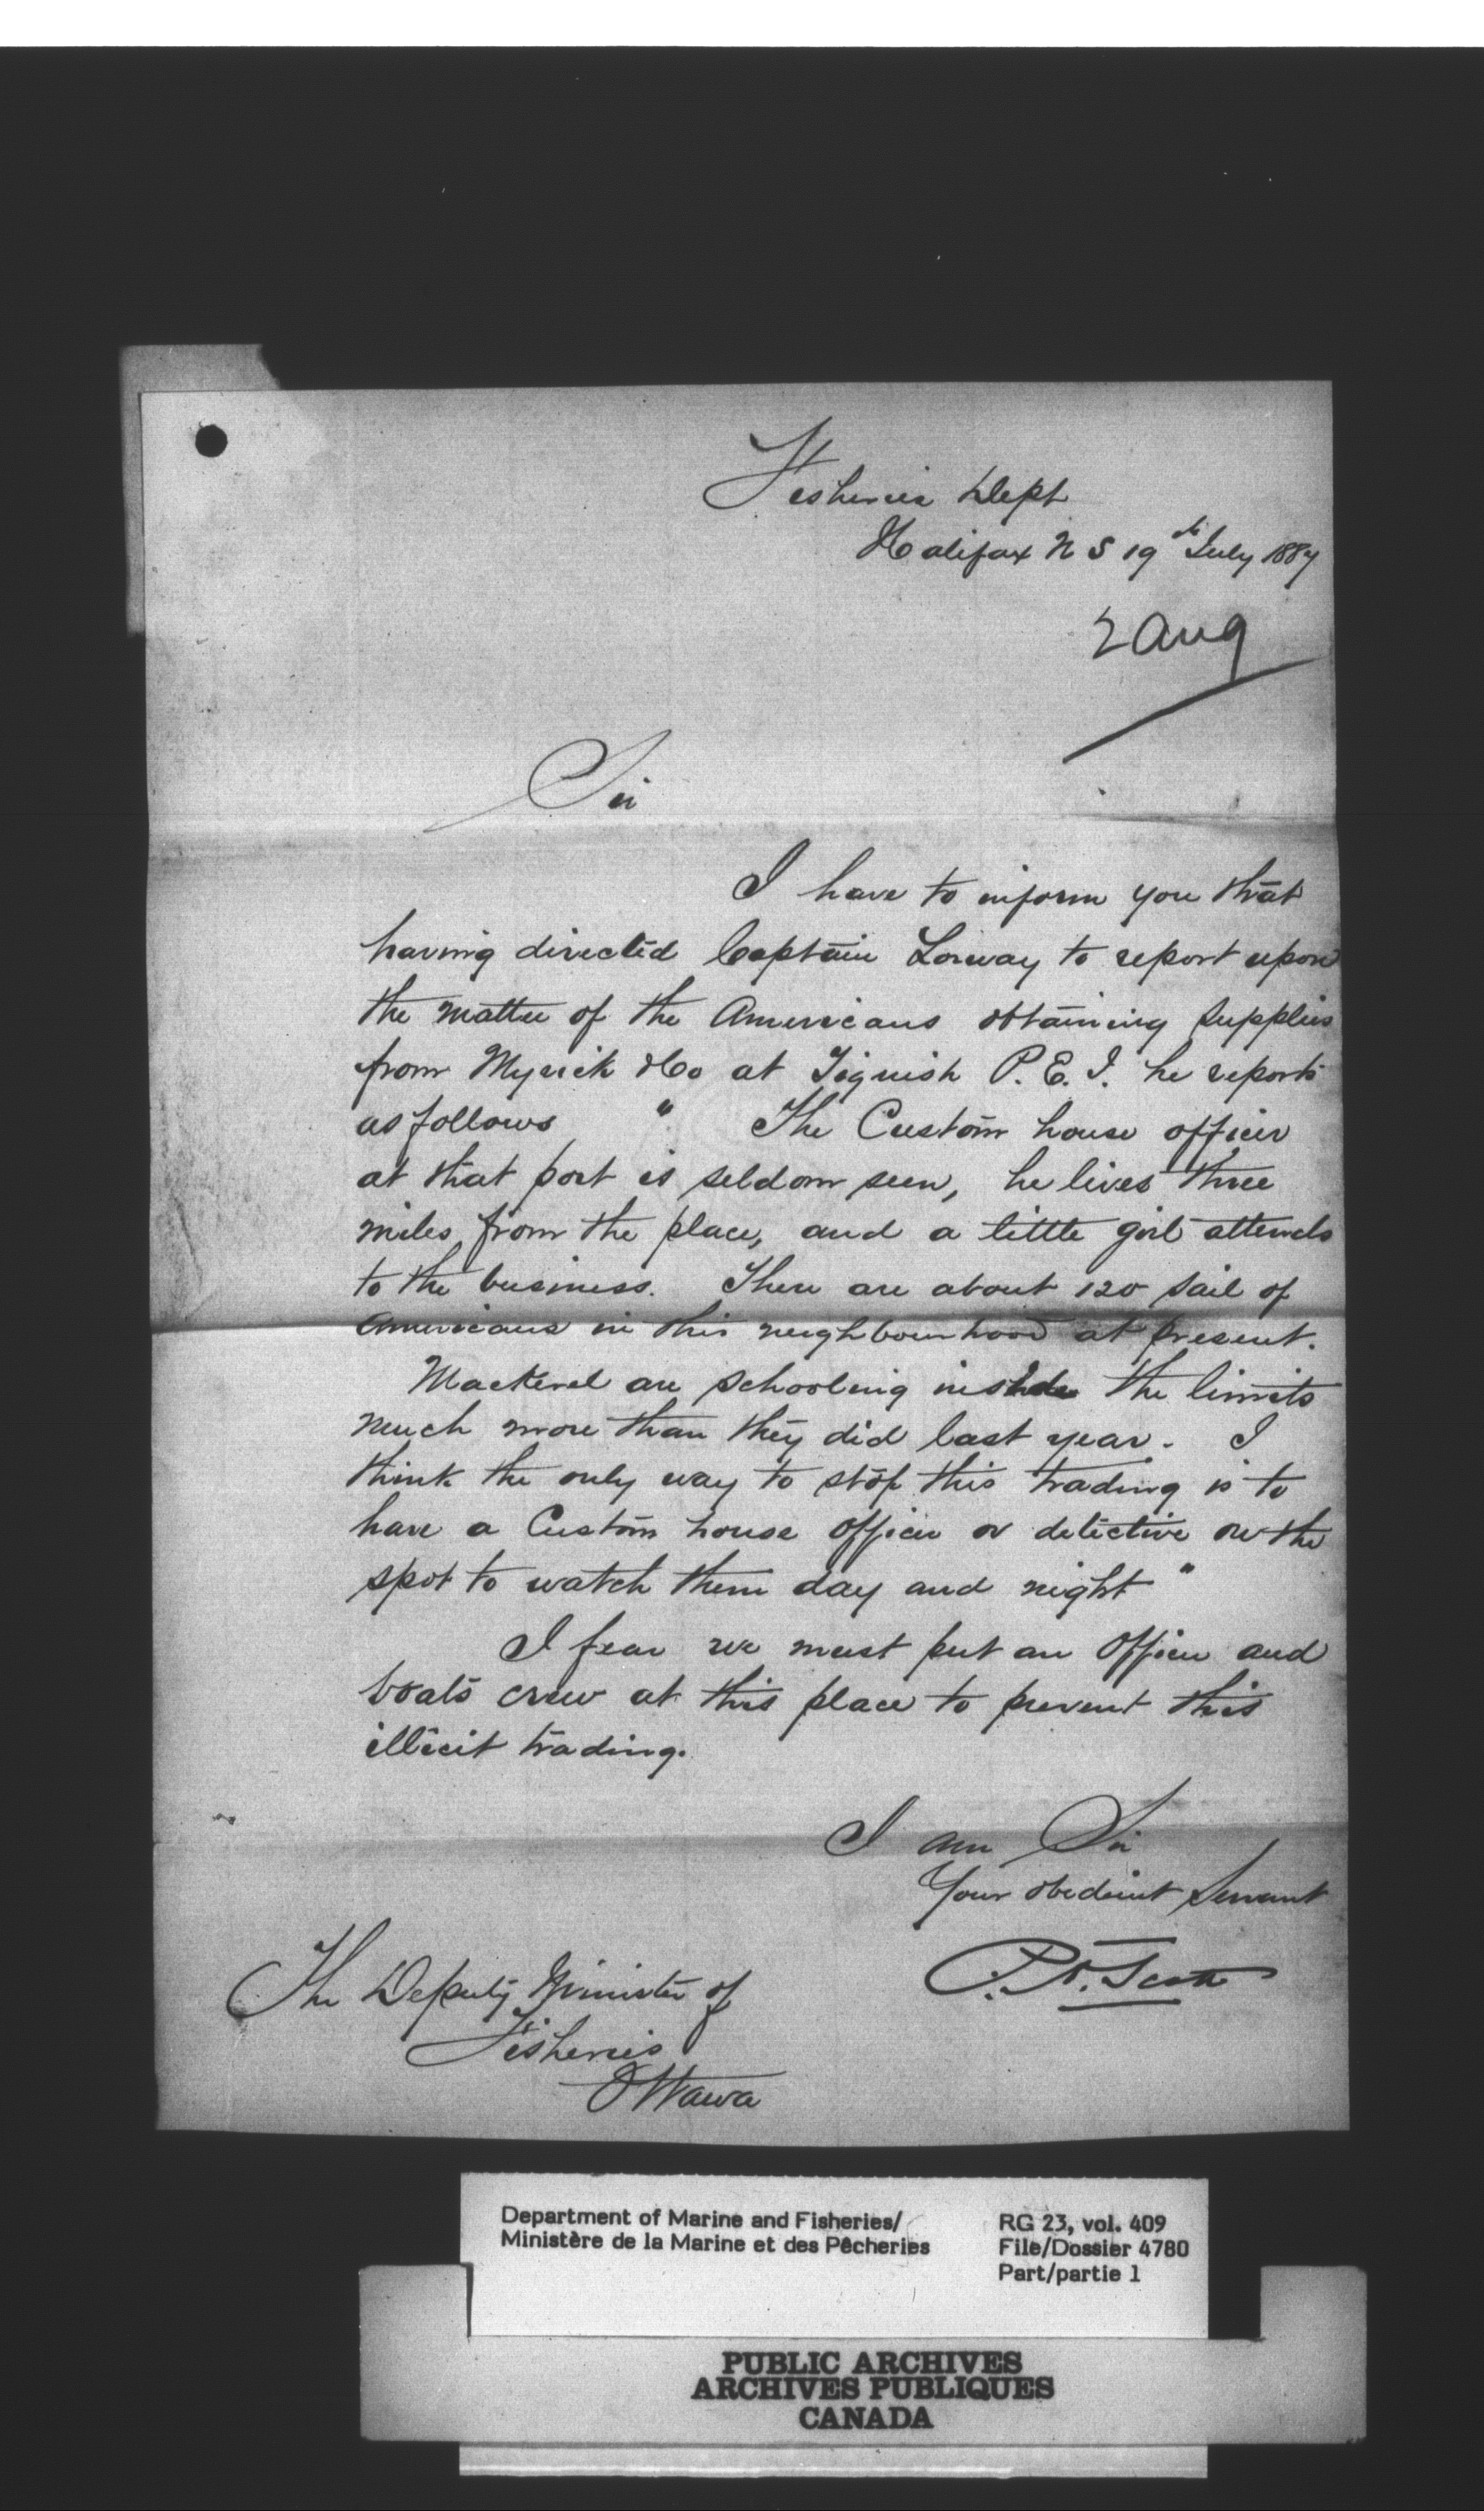 Fisheries Dept
Halifax N S 19th July 1887
2 Aug
Sir
I have to inform you that
having directed Captain Lorway to report upon
the matter of the Americans obtaining supplies
from Myrick & Co at Tignish P. E. I. he reports
as follows " The Custom house officer
at that port is seldom seen, he lives three
miles from the place, and a little girl attends
to the business. There are about 120 sail of
Americans in this neighbourhood at present.
Mackerel are schooling inside the limits
much more than they did last year. I
think the only way to stop this trading is to
have a Custom house officer or detective on the
spot to watch them day and night "
I fear we must put an Officer and
boats crew at this place to prevent this
illicit trading.
I am Sir
Your obedient Servant
P. A. Scott
The Deputy Minister of
Fisheries
Ottawa
Department of Marine and Fisheries/
Ministère de la Marine et des Pêcheries
RG 23, vol. 409
File/Dossier 4780
Part/partie 1
PUBLIC ARCHIVES
ARCHIVES PUBLIQUES
CANADA